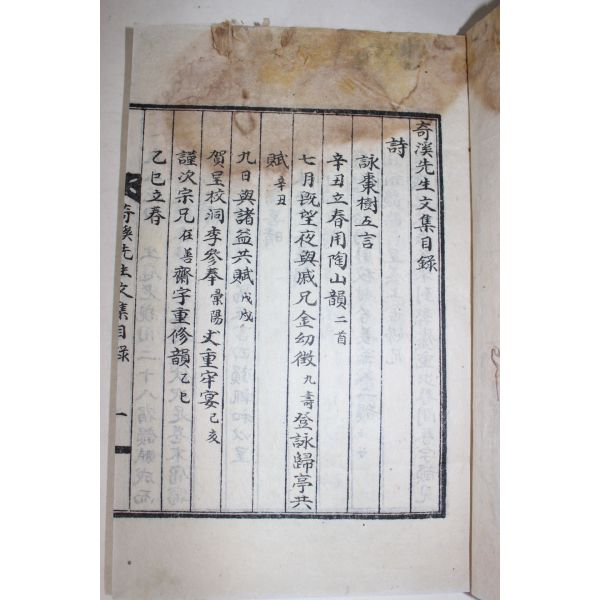 奇溪先生文集目錄
詩
詠棗樹五言
辛丑立春用陶山韻二首
七月旣望夜與戚兄金幼徵九壽登詠歸亭共
賦辛丑
九日與諸益共賦戊戌
賀呈校洞李參奉彙陽丈重牢宴己亥
謹次宗兄任善齋字重修韻乙巳
乙巳立春
奇溪先生文集目錄 一